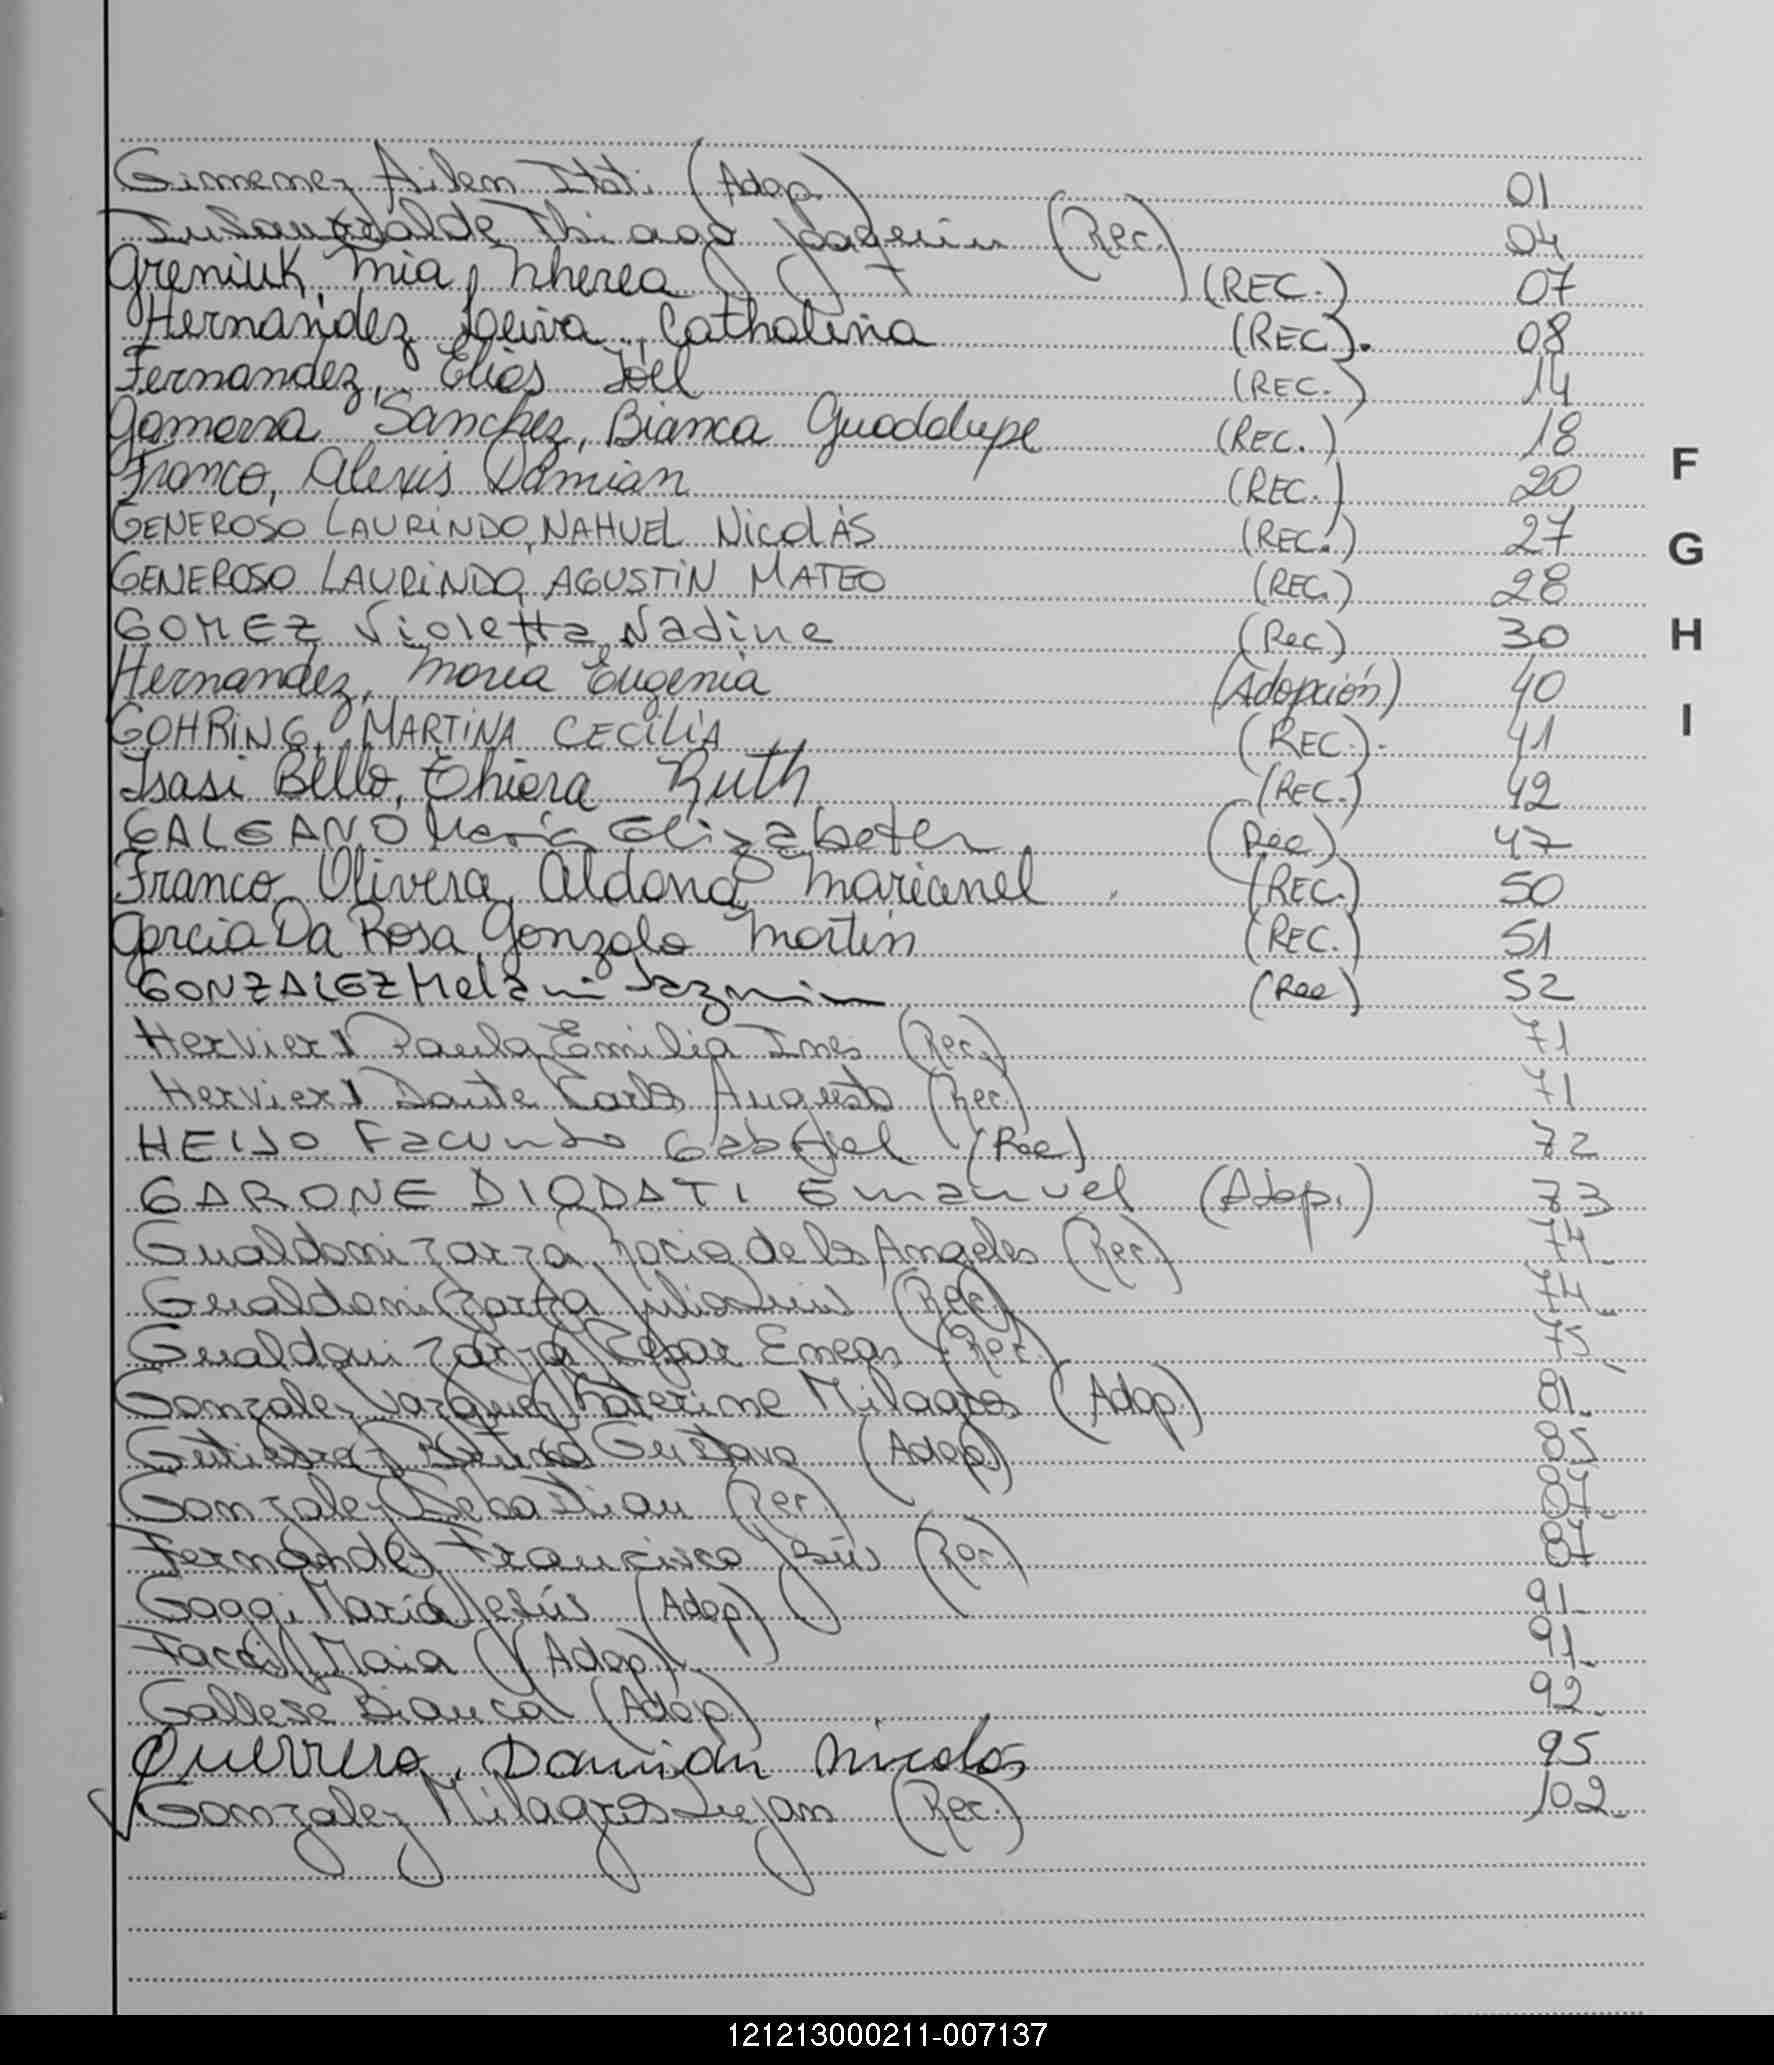 Gimenez Ailem Itati (Adop) 01
Thiago Joaquin (Rec.) 04
Greniuk, Mia, Nherea (REC.) 07
Hernandez Leiva, Catholina (REC.). 08
Fernandez, Elias Joel (REC.) 14
Gamarra Sanchez, Bianca Guadalupe (REC.) 18
Franco, Alexis Damian (REC.) 20
GENEROSO LAURINDO, NAHUEL NicolÁS (REC.) 27
GENEROSO LAURINDO, AGUSTIN MATEO (REC.) 28
GOMEZ Violetta Nadine (Rec) 30
Hernandez, Maria Eugenia (Adopción) 40
GOHRING, MARTINA CECILIA (REC.). 41
Isasi Bello, Chiara Ruth (REC.) 42
GALEANO Maria Elizabeter (Rec) 47
Franco Olivera, Aldana Marianel (REC.) 50
Garcia Da Rosa, Gonzalo Martin (REC.) 51
GONZALEZ Melani Jazmin (Rec) 52
Hervier Paula Emilia Ines (Rec.) 71
Hervier Dante Carlo Augusto (Rec.) 71
HEIJO Facundo Gabriel (Rec) 72
GARONE DIODATI Emanuel (Adop.) 73
Gualdoni Zarza Rocio de los Angeles (Rec.) 74
Gualdoni Zarza Julio Luis (Rec) 74
Gualdoni Zarza Cesar Eneas (Rec.) 75
Gonzalez Vazquez Katerine Milagros (Adop) 81
Gutierrez Gustavo (Adop) 85
Gonzalez Sebastian (Rec.) 87
Fernandez Francisco Jesús (Rec.) 87
Goggi Maria Jesús (Adop) 91
Maia (Adop) 91
Gallese Bianca (Adop) 92
Guerrero, Damian Nicolás 95
Gonzalez Milagros Lujan (Rec.) 102
F
G
H
I
121213000211-007137